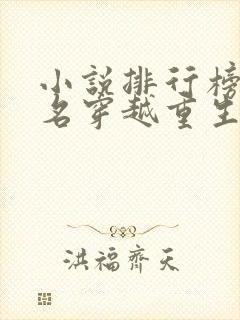 小説排行榜
名穿越重生
洪福齊天